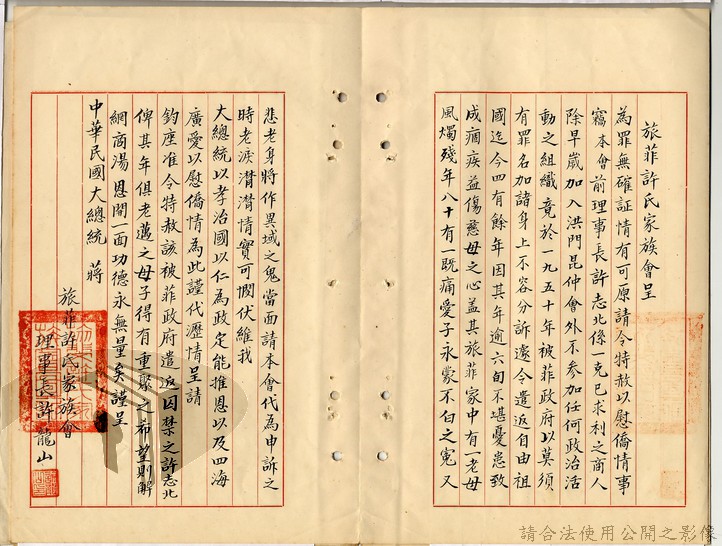 旅菲許氏家族會呈
為罪無確証情有可原請令特赦以慰僑情事
竊本會前理事長許志北係一克已求利之商人
除早歲加入洪門昆仲會外不參加任何政治活
動之組織竟於一九五十年被菲政府以莫須
有罪名加諸身上不容分訴遽令遣返自由祖
國迄今四有餘年因其年逾六旬不堪憂患致
成痼疾益傷慈母之心蓋其旅菲家中有一老母
風燭殘年八十有一既痛愛子永蒙不白之寃又
悲老身將作異域之鬼當面請本會代為申訴之
時老淚潸潸情實可憫伏維我
大總統以孝治國以仁為政定能推恩以及四海
廣愛以慰僑情為此謹代瀝情呈請
鈞座准令特赦該被菲政府遣返囚禁之許志北
俾其年俱老邁之母子得有重聚之希望則解
網商湯恩開一面功德永無量矣謹呈
中華民國大總統 蔣
旅菲許氏家族會
理事長許龍山
請合法使用公開之影像